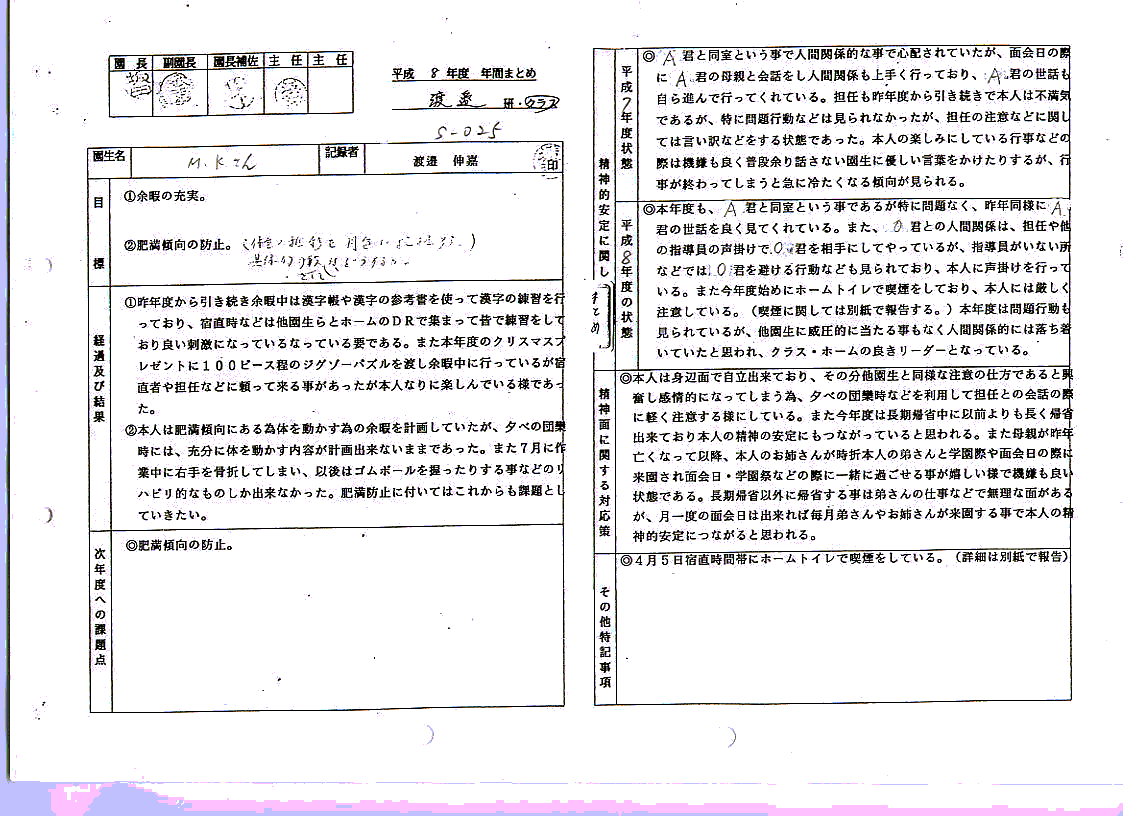 園長 副園長 園長補佐 主任 主任
平成 8 年度 年間まとめ
渡邉 班・クラス
S-025
園生名 M.Kさん 記録者 渡邉 伸嘉 印
目標
①余暇の充実。
②肥満傾向の防止。
経過及び結果
①昨年度から引き続き余暇中は漢字帳や漢字の参考書を使って漢字の練習を行
っており、宿直時などは他園生らとホームのDRで集まって皆で練習をして
おり良い刺激になっているなっている要である。また本年度のクリスマスプ
レゼントに100ピース程のジグソーパズルを渡し余暇中に行っているが宿
直者や担任などに頼って来る事があったが本人なりに楽しんでいる様であっ
た。
②本人は肥満傾向にある為体を動かす為の余暇を計画していたが、夕べの団欒
時には、充分に体を動かす内容が計画出来ないままであった。また7月に作
業中に右手を骨折してしまい、以後はゴムボールを握ったりする事などのリ
ハビリ的なものしか出来なかった。肥満防止に付いてはこれからも課題とし
ていきたい。
次年度への課題点
◎肥満傾向の防止。
精神的安定に関し
まとめ
平成7年度状態
◎A君と同室という事で人間関係的な事で心配されていたが、面会日の際
にA君の母親と会話をし人間関係も上手く行っており、A君の世話も
自ら進んで行ってくれている。担任も昨年度から引き続きで本人は不満気
であるが、特に問題行動などは見られなかったが、担任の注意などに関し
ては言い訳などをする状態であった。本人の楽しみにしている行事などの
際は機嫌も良く普段余り話さない園生に優しい言葉をかけたりするが、行
事が終わってしまうと急に冷たくなる傾向が見られる。
平成8年度の状態
◎本年度も、A君と同室という事であるが特に問題なく、昨年同様にA
君の世話を良く見てくれている。また、O君との人間関係は、担任や他
の指導員の声掛けでO君を相手にしてやっているが、指導員がいない所
などではO君を避ける行動なども見られており、本人に声掛けを行って
いる。また今年度始めにホームトイレで喫煙をしており、本人には厳しく
注意している。（喫煙に関しては別紙で報告する。）本年度は問題行動も
見られているが、他園生に威圧的に当たる事もなく人間関係的には落ち着
いていたと思われ、クラス・ホームの良きリーダーとなっている。
精神面に関する対応策
◎本人は身辺面で自立出来ており、その分他園生と同様な注意の仕方であると興
奮し感情的になってしまう為、夕べの団欒時などを利用して担任との会話の際
に軽く注意する様にしている。また今年度は長期帰省中に以前よりも長く帰省
出来ており本人の精神の安定にもつながっていると思われる。また母親が昨年
亡くなって以降、本人のお姉さんが時折本人の弟さんと学園際や面会日の際に
来園され面会日・学園祭などの際に一緒に過ごせる事が嬉しい様で機嫌も良い
状態である。長期帰省以外に帰省する事は弟さんの仕事などで無理な面がある
が、月一度の面会日は出来れば毎月弟さんやお姉さんが来園する事で本人の精
神的安定につながると思われる。
その他特記事項
◎4月5日宿直時間帯にホームトイレで喫煙をしている。（詳細は別紙で報告）